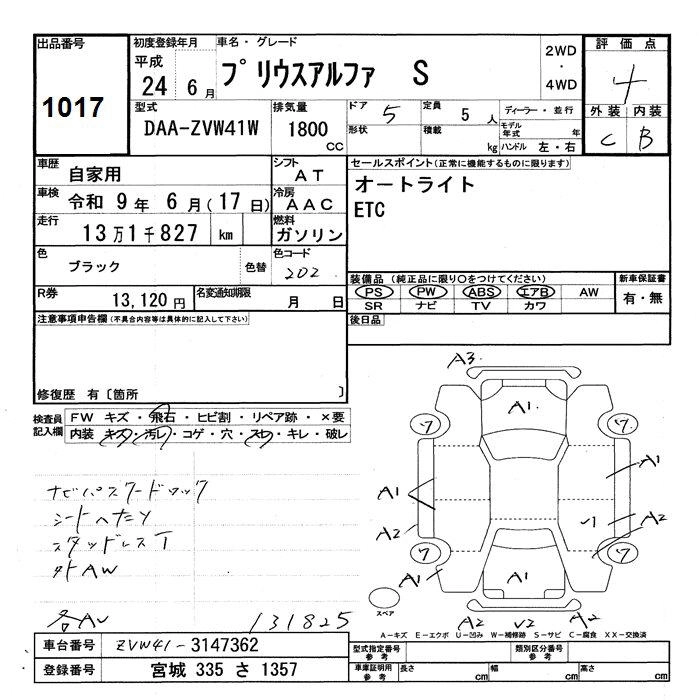 出品番号
1017
初度登録年月
平成
24 6月
車名・グレード
プリウスアルファ S
2WD
・
4WD
評価点
4
外装 内装
C B
型式
DAA-ZVW41W
排気量
1800
CC
ドア 5
形状
定員 5 人
積載 kg
ディーラー・並行
モデル年式 年
ハンドル 左・右
車歴
自家用
シフト
AT
車検
令和 9年 6月(17日)
冷房
AAC
走行
13万1千827 km
燃料
ガソリン
色
ブラック
色替
色コード
202
R券
13,120円
名変通知期限
月 日
セールスポイント(正常に機能するものに限ります)
オートライト
ETC
装備品(純正品に限り○をつけてください)
PS PW ABS エアB AW
SR ナビ TV カワ
新車保証書
有・無
後日品
注意事項申告欄(不具合内容等は具体的に記入して下さい)
修復歴 有〔箇所 〕
検査員
記入欄
FW キズ・飛石・ヒビ割・リペア跡・×要
内装 キズ・汚レ・コゲ・穴・スレ・キレ・破レ
ナビパスワードロック
シートヘタリ
スタッドレスT
外AW
各AU
131825
A3
A1
ワ
ワ
A1
A1
A2
A2
ワ
ワ
A1
A1
スペア
A2 U2 A2
A-キズ E-エクボ U-凹み W-補修跡 S-サビ C-腐食 XX-交換済
車台番号
ZVW41-3147362
登録番号
宮城 335 さ 1357
型式指定番号
参考
類別区分番号
参考
車庫証明用
参考
長さ cm
幅 cm
高さ cm